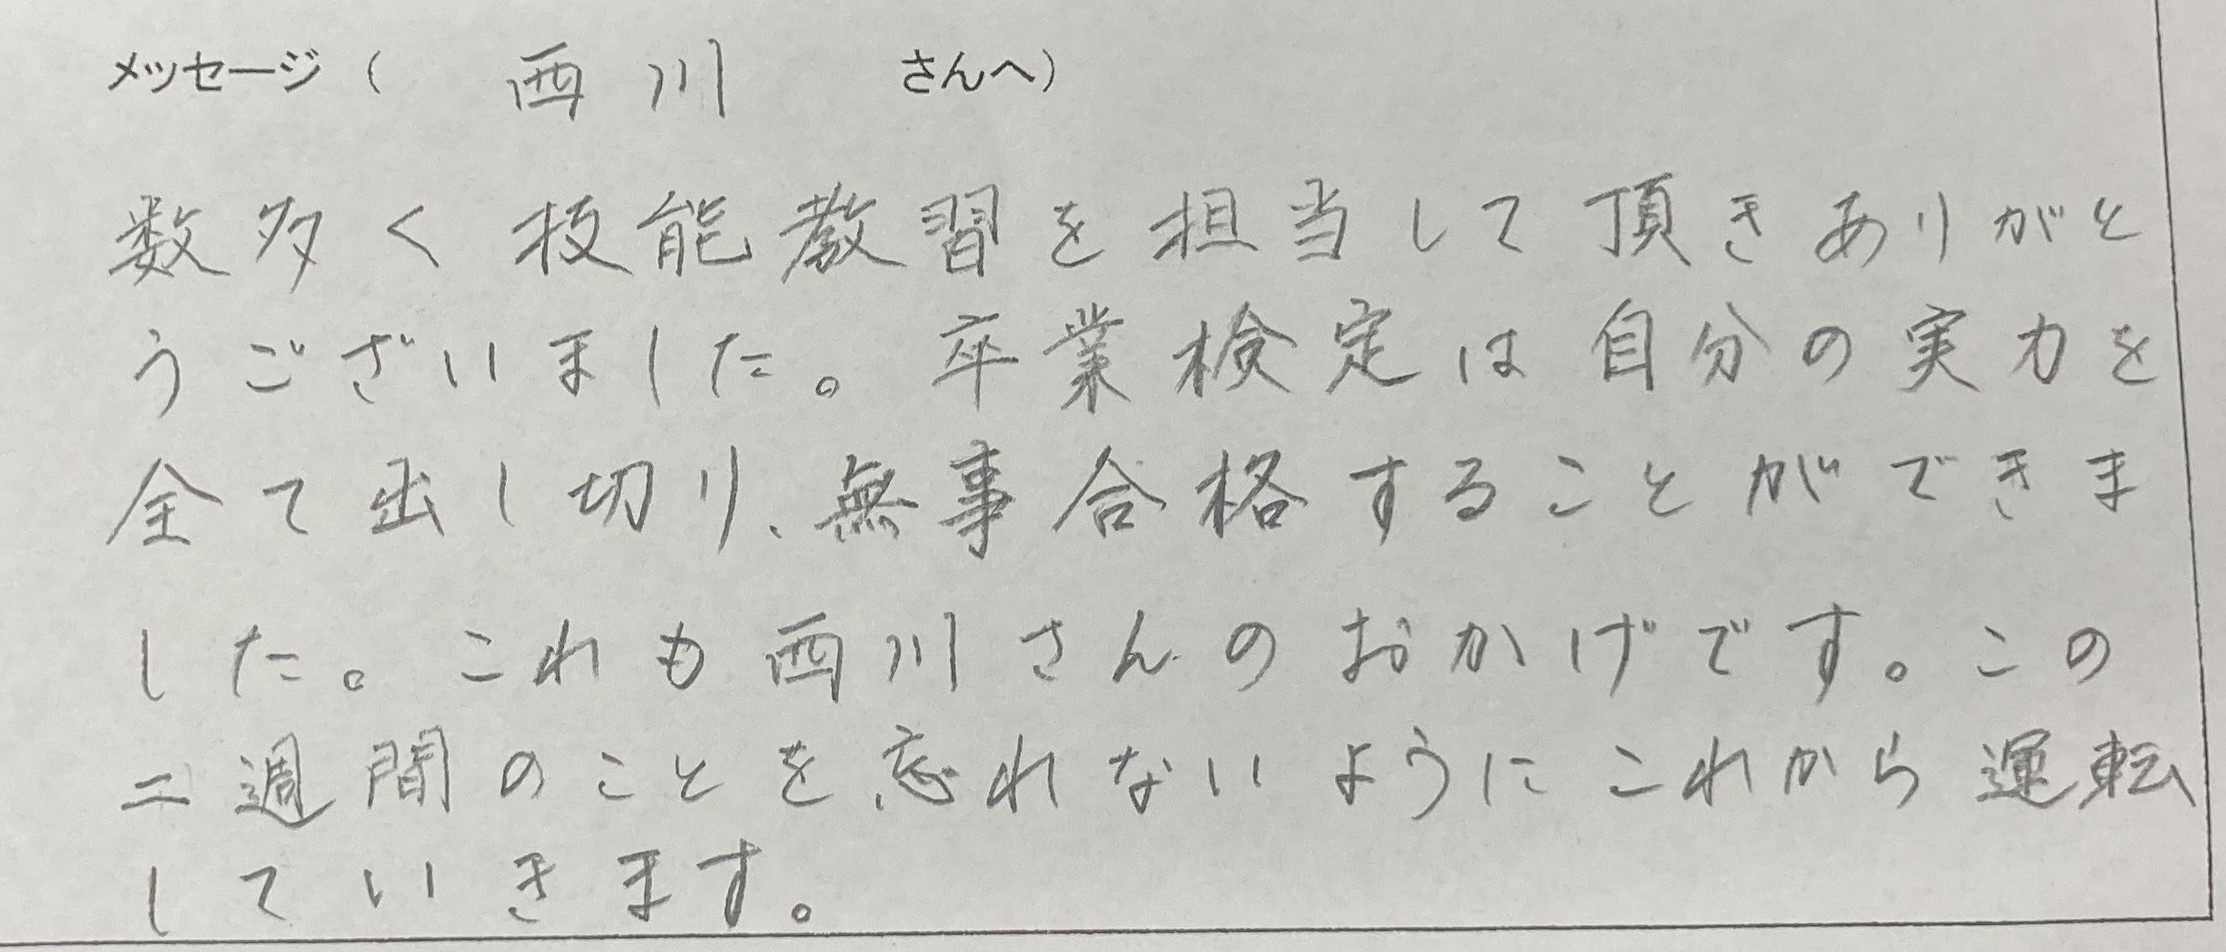 メッセージ（ 西川 さんへ）
数多く技能教習を担当して頂きありがと
うございました。卒業検定は自分の実力を
全て出し切り、無事合格することができま
した。これも西川さんのおかげです。この
二週間のことを忘れないようにこれから運転
していきます。